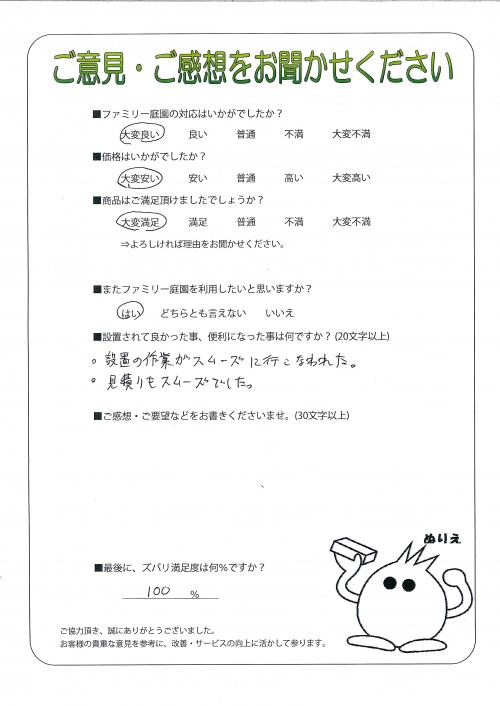 ご意見・ご感想をお聞かせください
■ファミリー庭園の対応はいかがでしたか？
大変良い 良い 普通 不満 大変不満
■価格はいかがでしたか？
大変安い 安い 普通 高い 大変高い
■商品はご満足頂けましたでしょうか？
大変満足 満足 普通 不満 大変不満
⇒よろしければ理由をお聞かせください。
■またファミリー庭園を利用したいと思いますか？
はい どちらとも言えない いいえ
■設置されて良かった事、便利になった事は何ですか？(20文字以上)
。設置の作業がスムーズに行こなわれた。
。見積りもスムーズでした。
■ご感想・ご要望などをお書きくださいませ。(30文字以上)
ぬりえ
■最後に、ズバリ満足度は何%ですか？
100 %
ご協力頂き、誠にありがとうございました。
お客様の貴重な意見を参考に、改善・サービスの向上に活かして参ります。